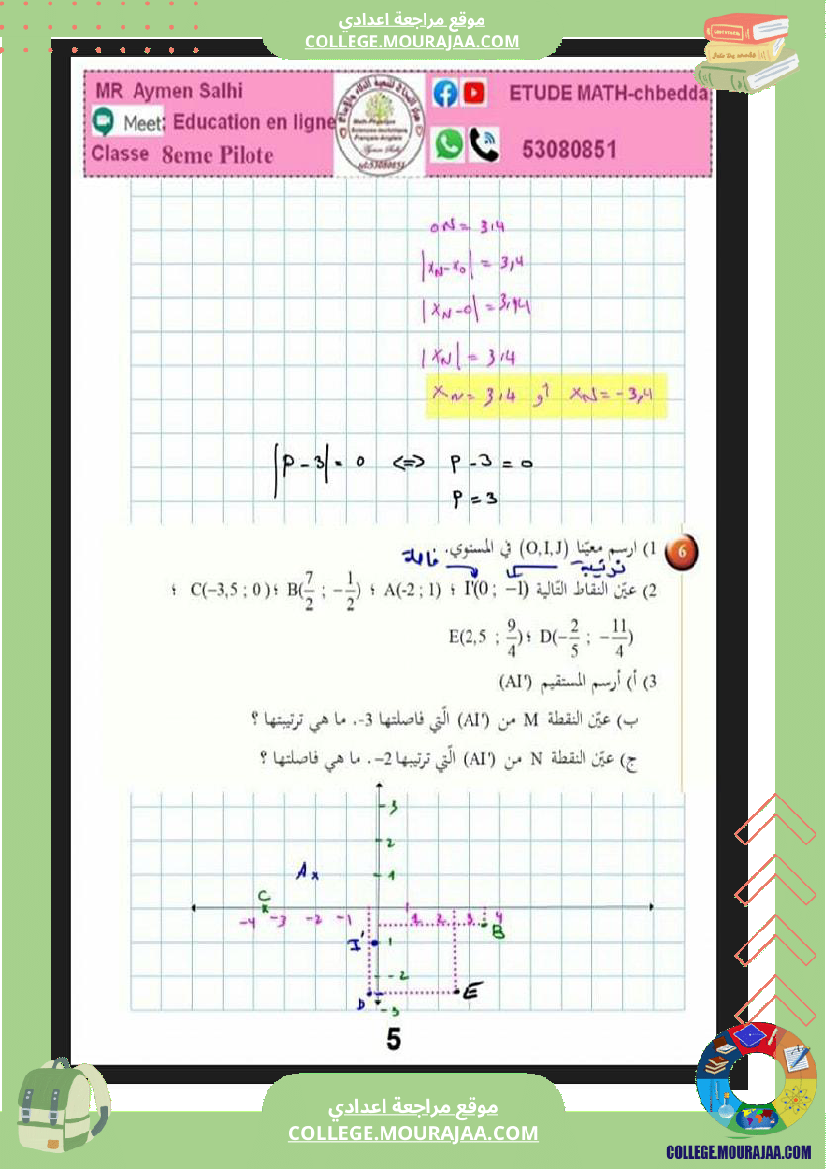 موقع مراجعة اعدادي
COLLEGE.MOURAJAA.COM
MR Aymen Salhi
Meet: Education en ligne
Classe 8eme Pilote
ETUDE MATH-chbedda
53080851
ON = 3,4
|xN - xO| = 3,4
|xN - 0| = 3,4
|xN| = 3,4
xN = 3,4 أو xN = -3,4
|P - 3| = 0 <=> P - 3 = 0
P = 3
6
1) ارسم معيّنا (O,I,J) في المستوي.
فاصلة ترتيبة
2) عيّن النقاط التالية I'(0 ; -1) ؛ A(-2 ; 1) ؛ B(7/2 ; -1/2) ؛ C(-3,5 ; 0) ؛
D(-2/5 ; -11/4) ؛ E(2,5 ; 9/4)
3) أ) أرسم المستقيم (AI')
ب) عيّن النقطة M من (AI') الّتي فاصلتها 3-. ما هي ترتيبتها ؟
ج) عيّن النقطة N من (AI') الّتي ترتيبها 2-. ما هي فاصلتها ؟
3
2
A 1
C
-4 -3 -2 -1 1 2 3 4
B
I' 1
-2
D E
-3
5
موقع مراجعة اعدادي
COLLEGE.MOURAJAA.COM
COLLEGE.MOURAJAA.COM